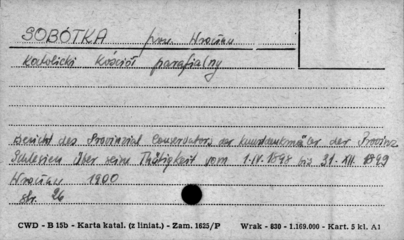 SOBÓTKA pow. Wrocław
Katolicki Kościół parafialny
Bericht des Provinzial Conservators der Kunstdenkmäler der Provinz
Schlesien über seine Thätigkeit vom 1.IV.1898 bis 31.XII.1899
Wrocław 1900
str. 26
CWD - B 15b - Karta katal. (z liniat.) - Zam. 1625/P Wrak - 830 - 1.169.000 - Kart. 5 kl. A1